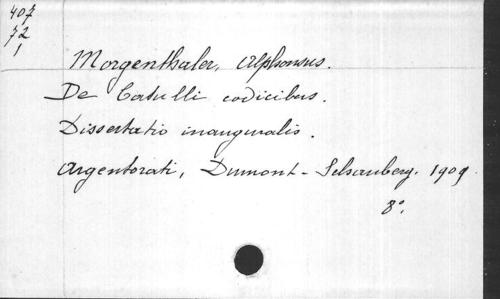 407
72
1
Morgenthaler, Alphonsus.
De Catulli codicibus.
Dissertatio inauguralis.
Argentorati, Dumont-Schauberg. 1909.
8°.